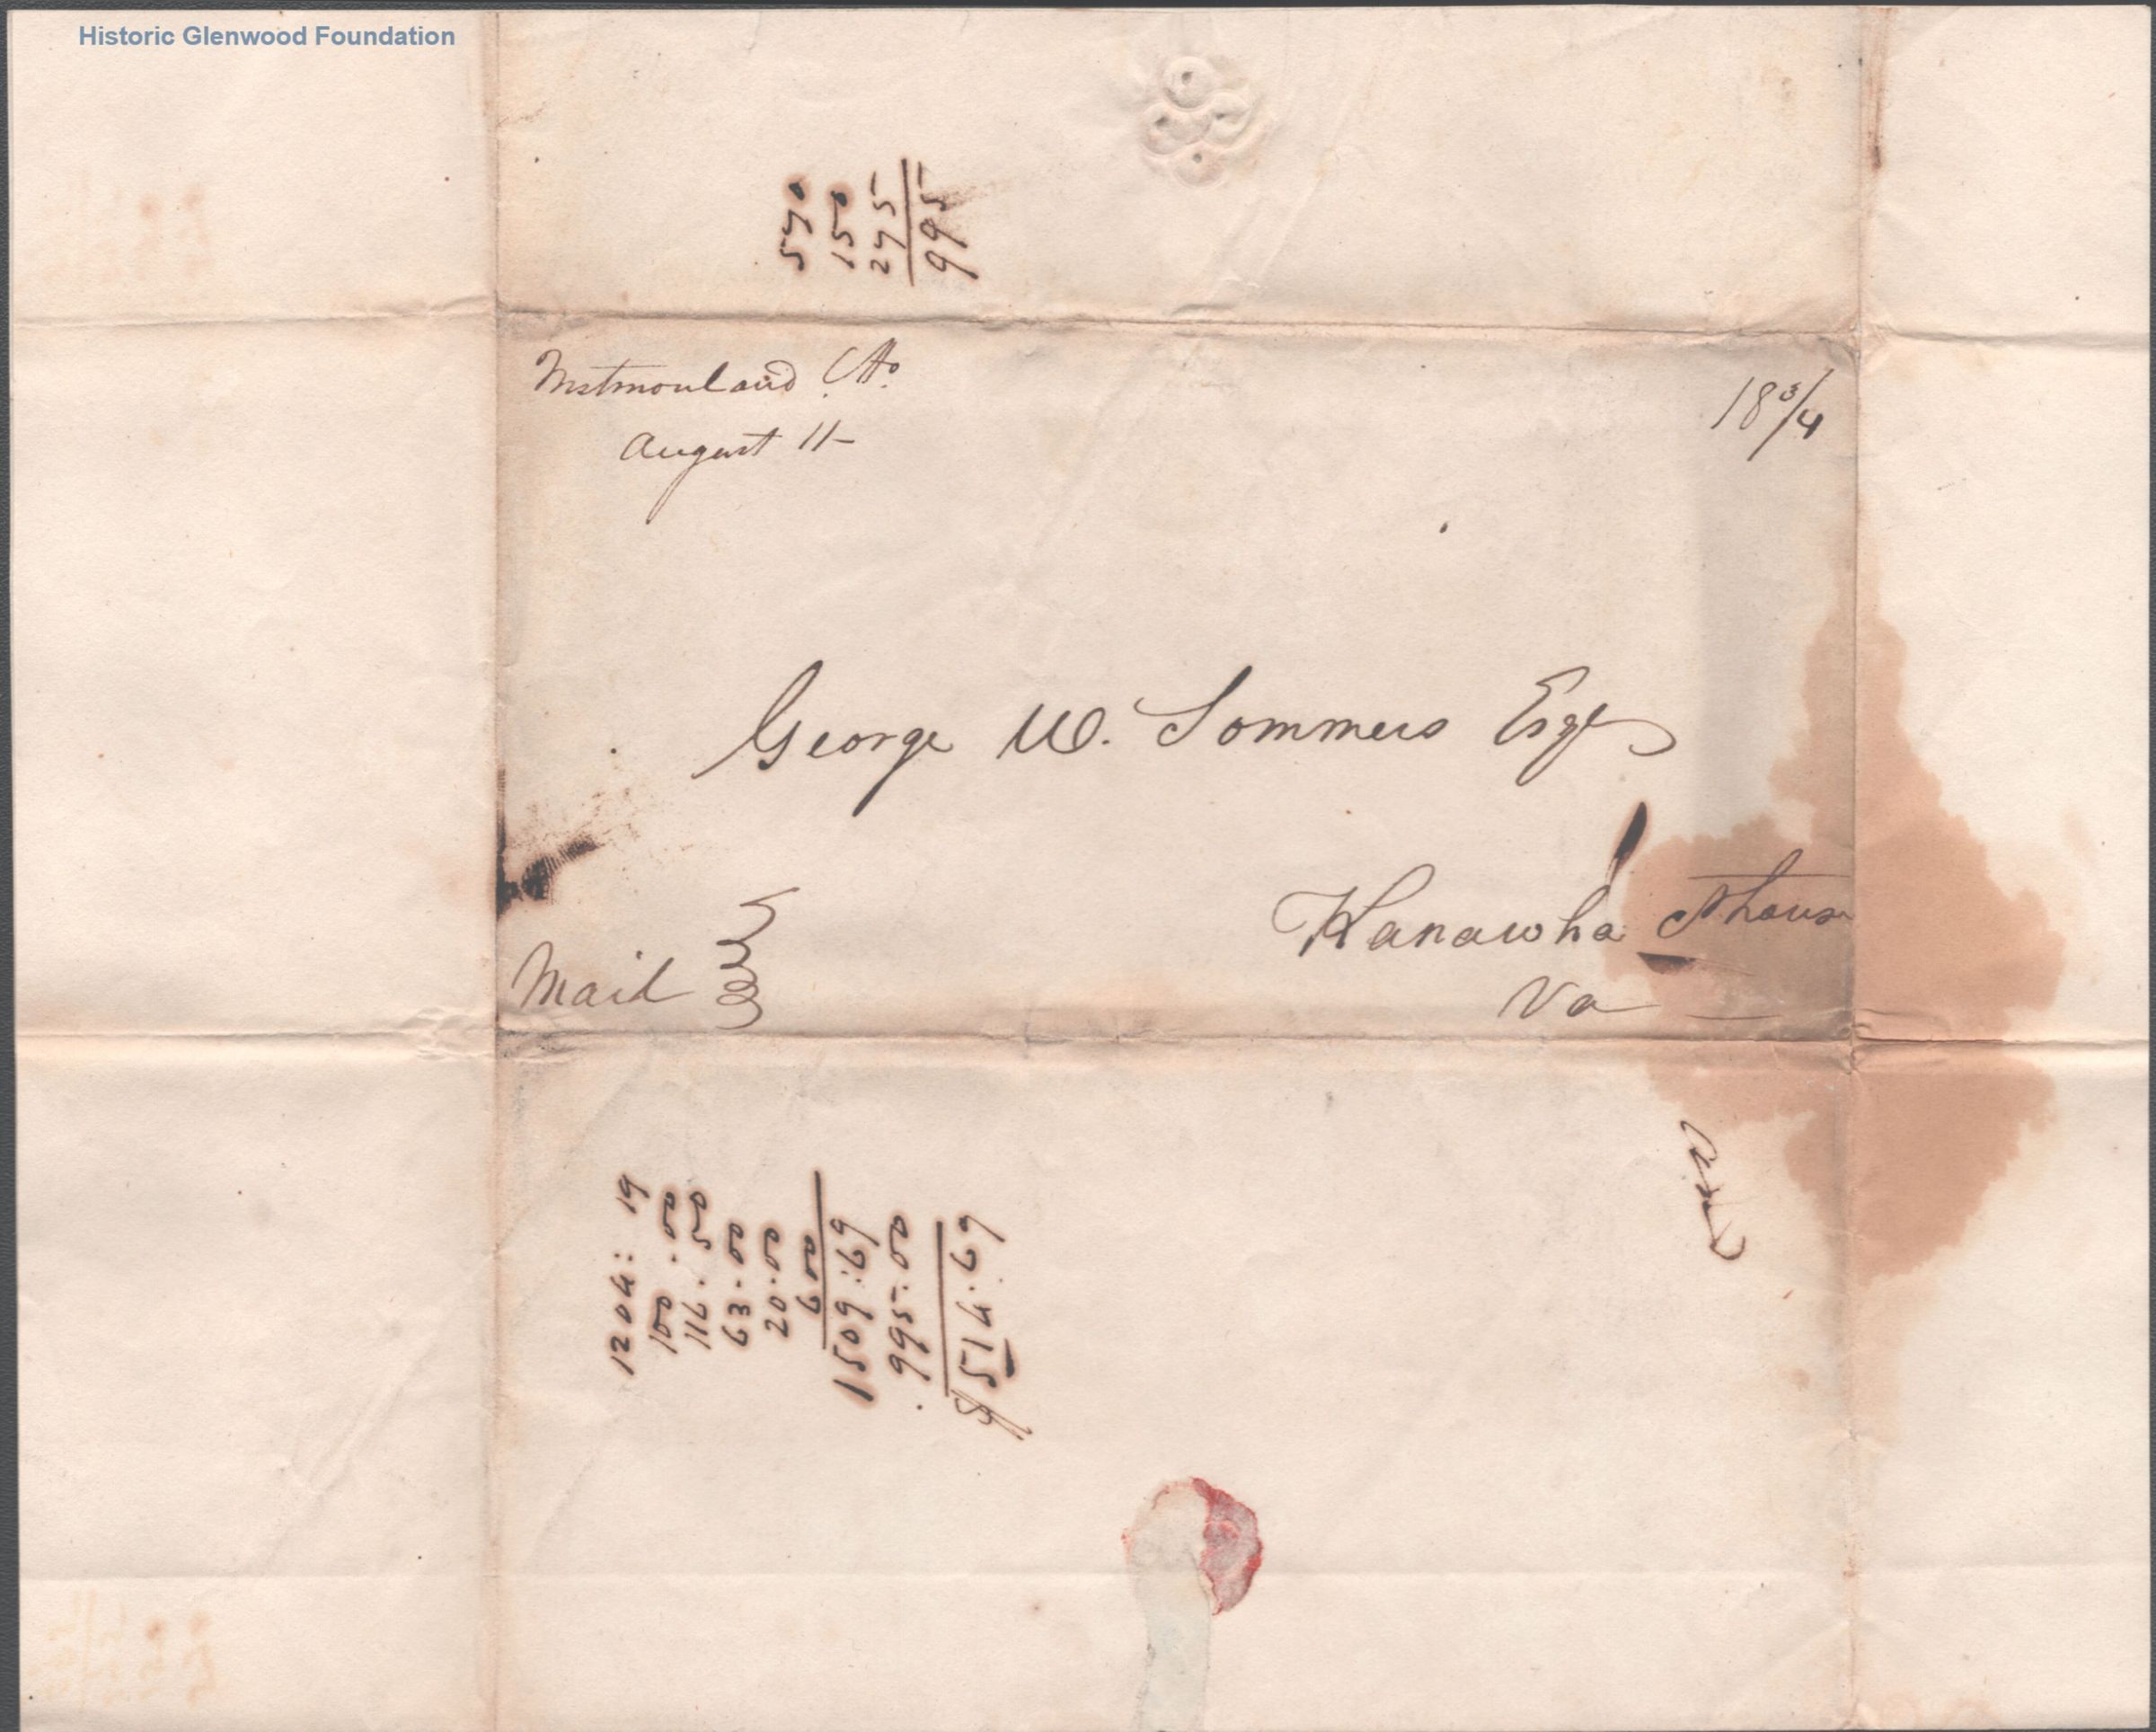 Historic Glenwood Foundation
570
150
275
995
Westmoreland C.Ho.
August 11
18 3/4
George W. Sommers Esqr
Kanawha Ct house
Va
Mail
1204:19
100.00
116.50
63.00
20.00
6 00
1509:69
995:00
$514.69